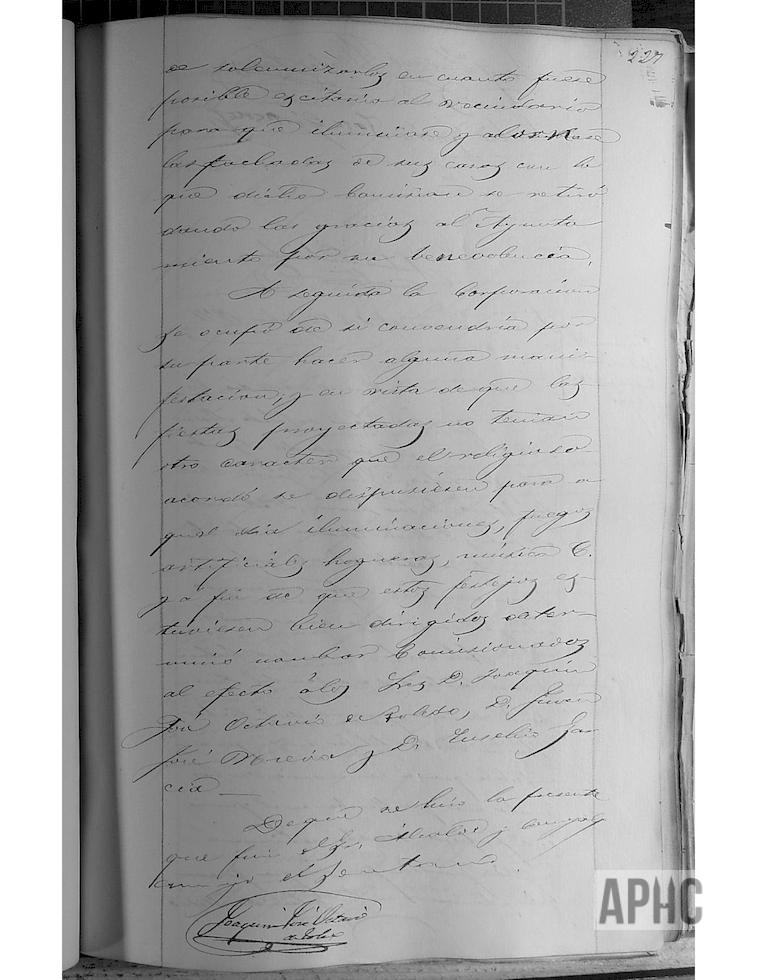 227
de solemnizarlos en cuanto fuese
posible escitaria al vecindario
para que iluminase y adornase
las fachadas de sus casas con lo
que dicha Comision se retiró
dando las gracias al Ayunta
miento por su benevolencia.
A seguida la Corporacion
se ocupó de si convendria por
su parte hacer alguna mani-
festacion; y en vista de que las
fiestas proyectadas no tenian
otro caracter que el religioso
acordó se dispusiesen para a
quel dia iluminaciones, fuegos
artificiales hogueras, música &.
y á fin de que estos festejos es-
tuviesen bien dirigidos deter-
minó nombrar Comisionados
al efecto á los Sres D. Joaquin
José Octavio de Toledo, D. Juan
José y D. Eusebio Gar
cia_
De que se hizo la presente
que firma el Sr. Alcalde y
Joaquin José Octavio
de Toledo
APHC